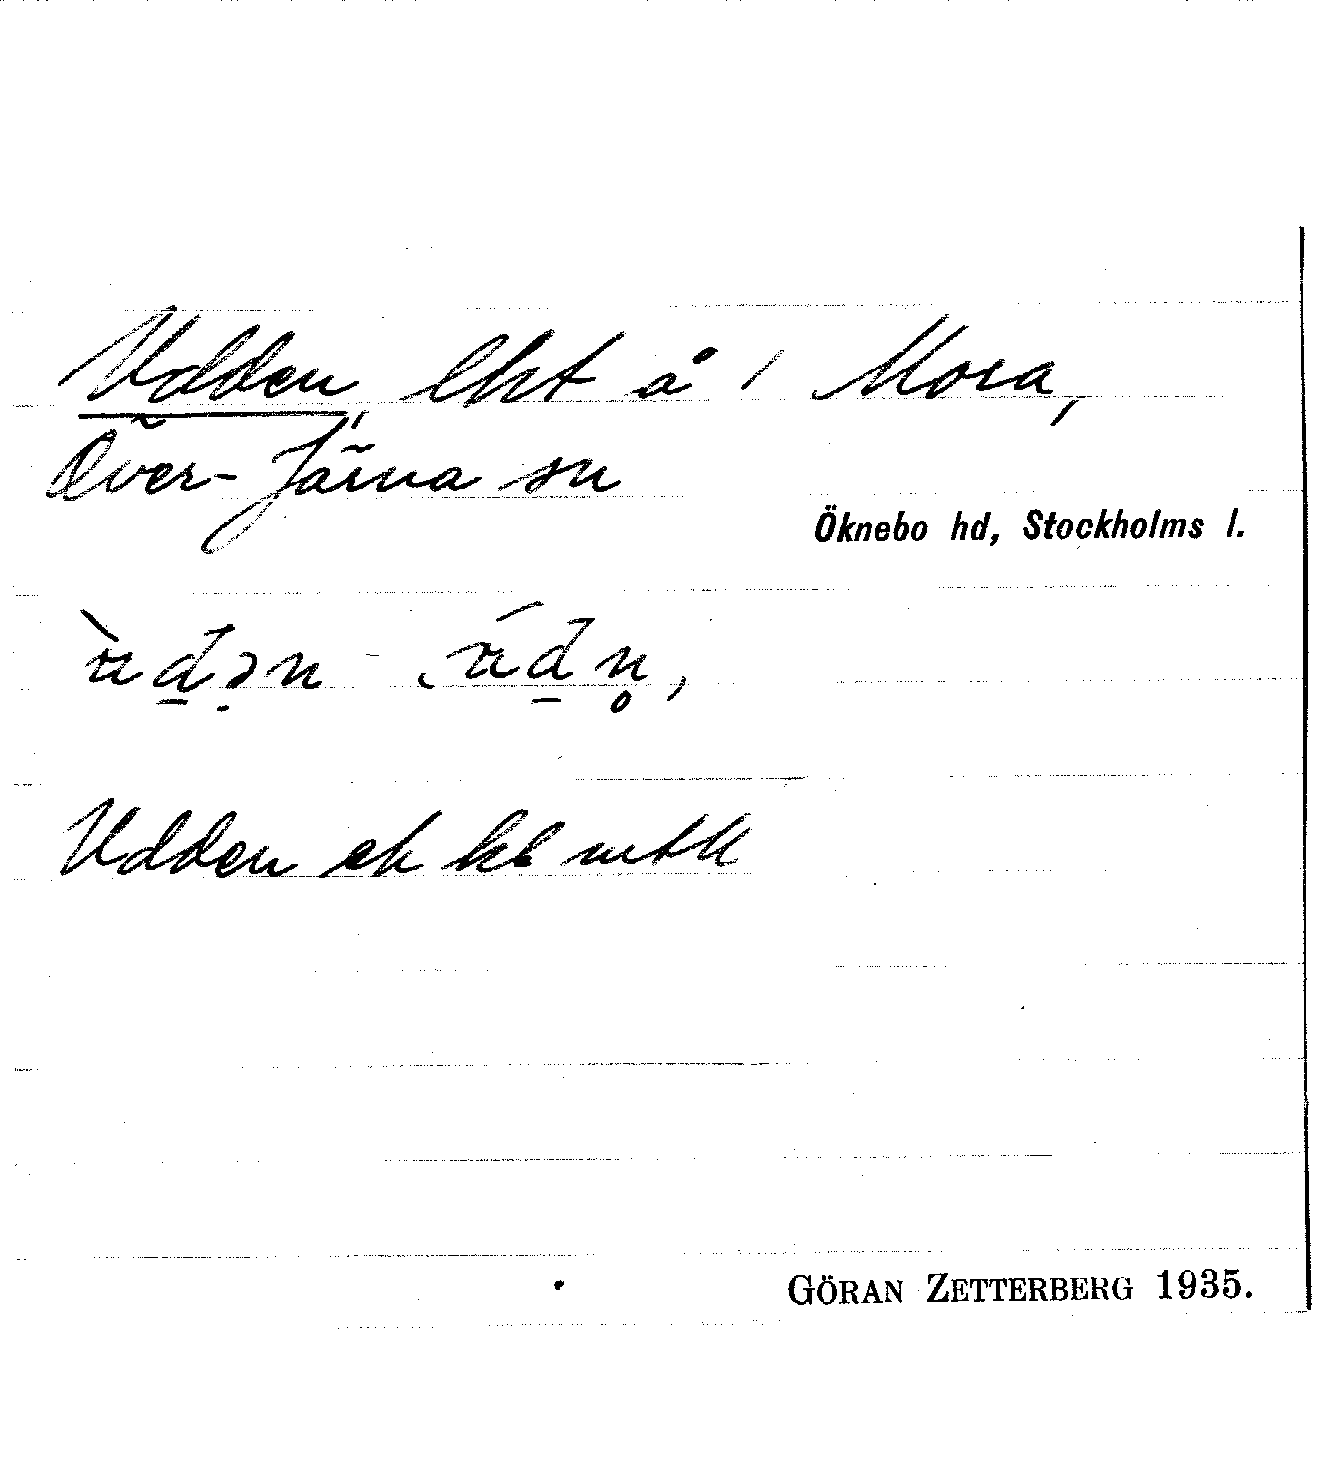 Udden lht å 1 Mora,
Över-Järna sn
Öknebo hd, Stockholms l.
Udden ek
GÖRAN ZETTERBERG 1935.